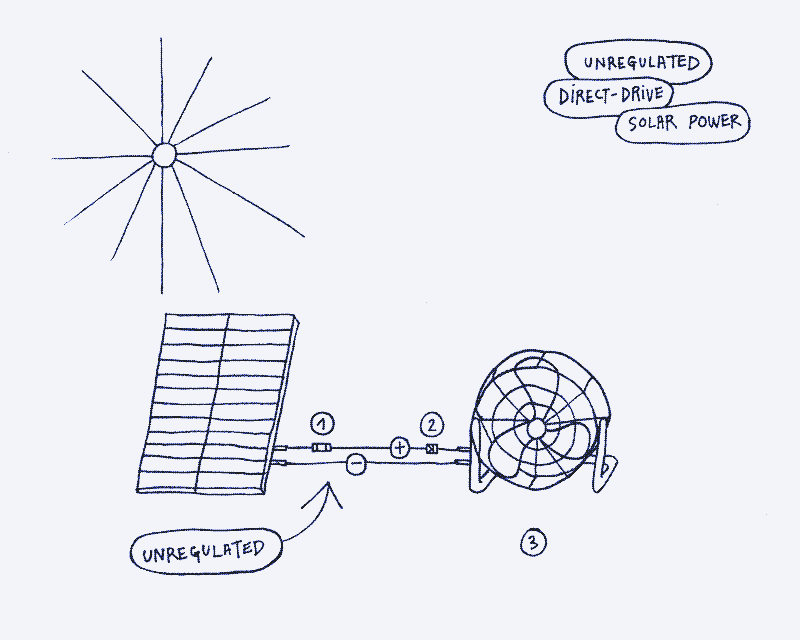 UNREGULATED
DIRECT-DRIVE
SOLAR POWER
1
2
+
−
UNREGULATED
3